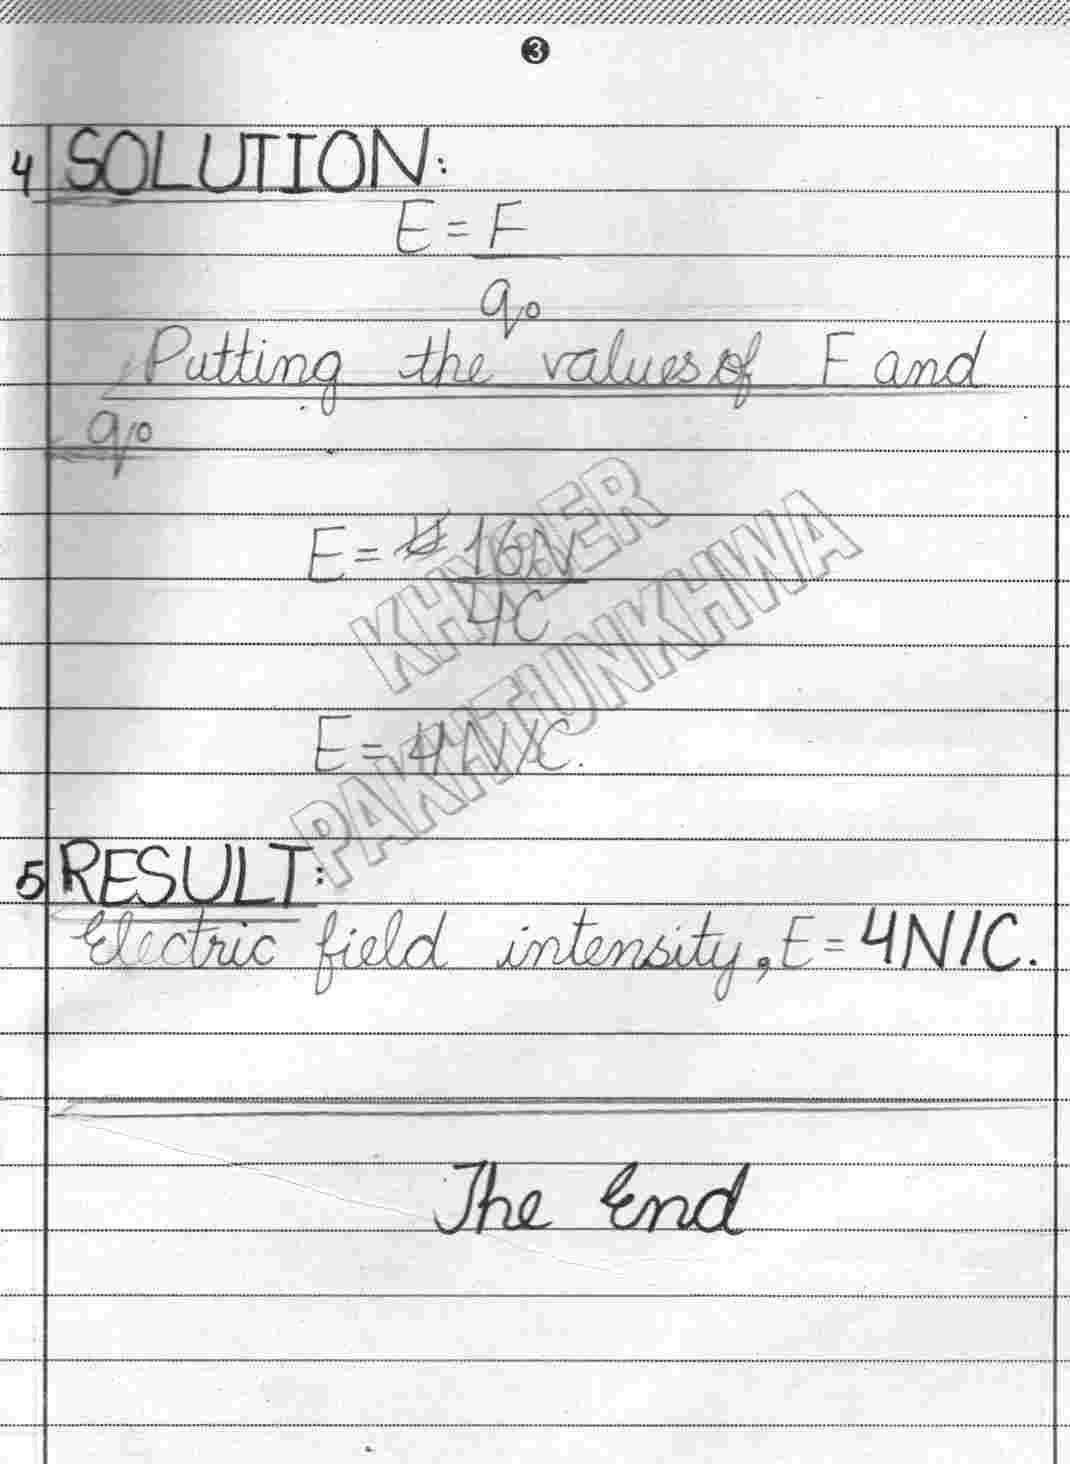 3
4 SOLUTION:
E = F
q₀
Putting the values of F and
q₀
E = 16N
4C
KHYBER
PAKHTUNKHWA
E = 4N/C.
5 RESULT:
Electric field intensity, E = 4N/C.
The End